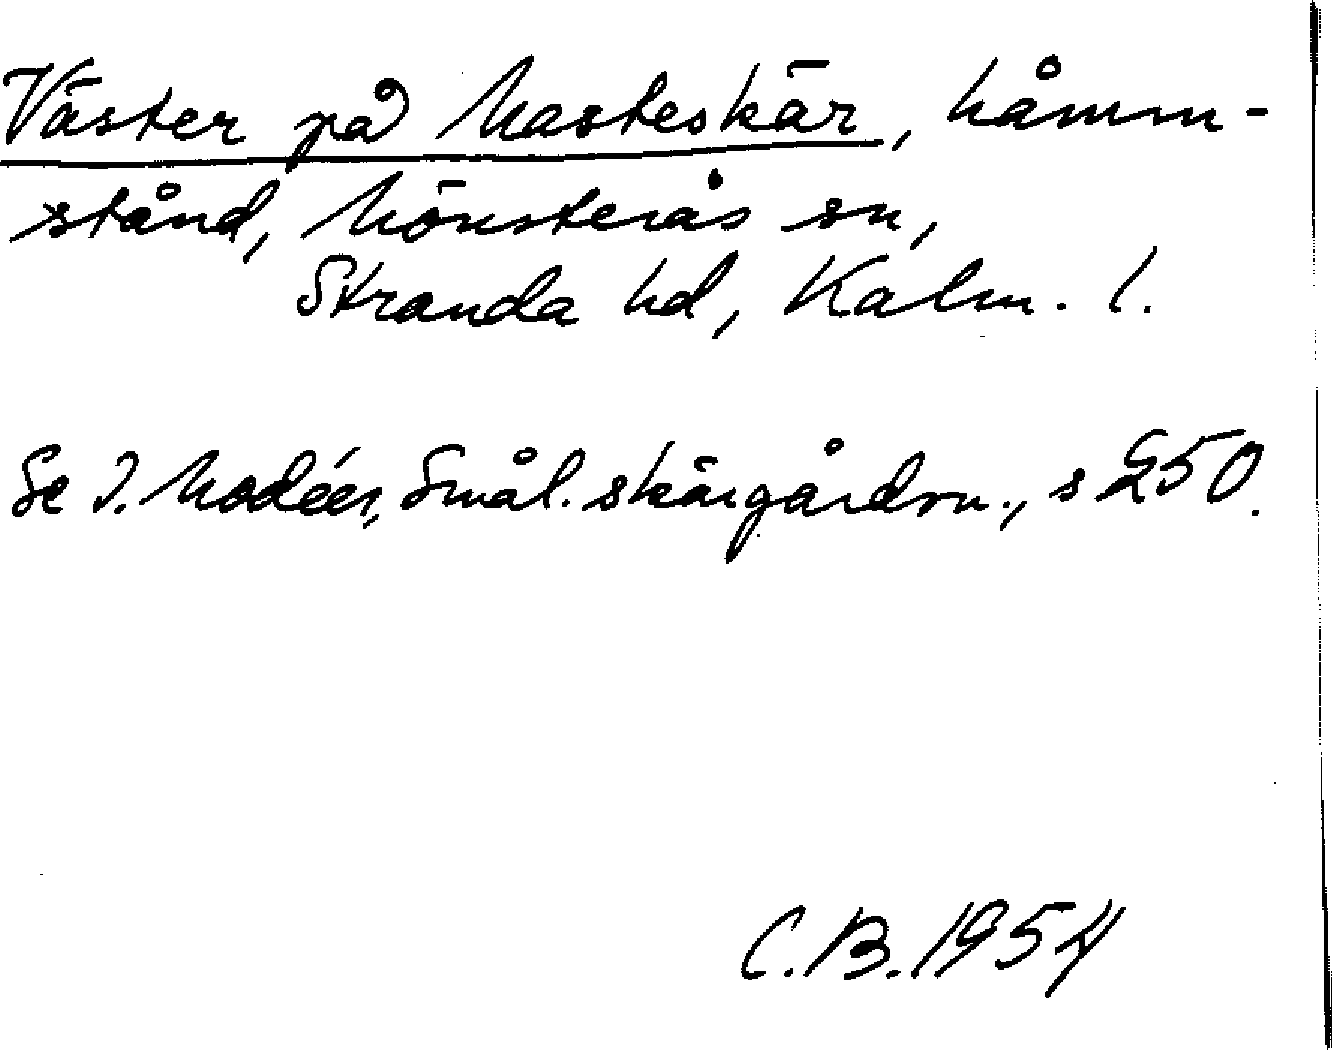 Väster på Masteskär, håmm-
stånd, Mönsterås sn,
Stranda hd, Kalm. l.
Se I. Modéer, Smål. skärgårdsn., s 250.
C.B. 1954